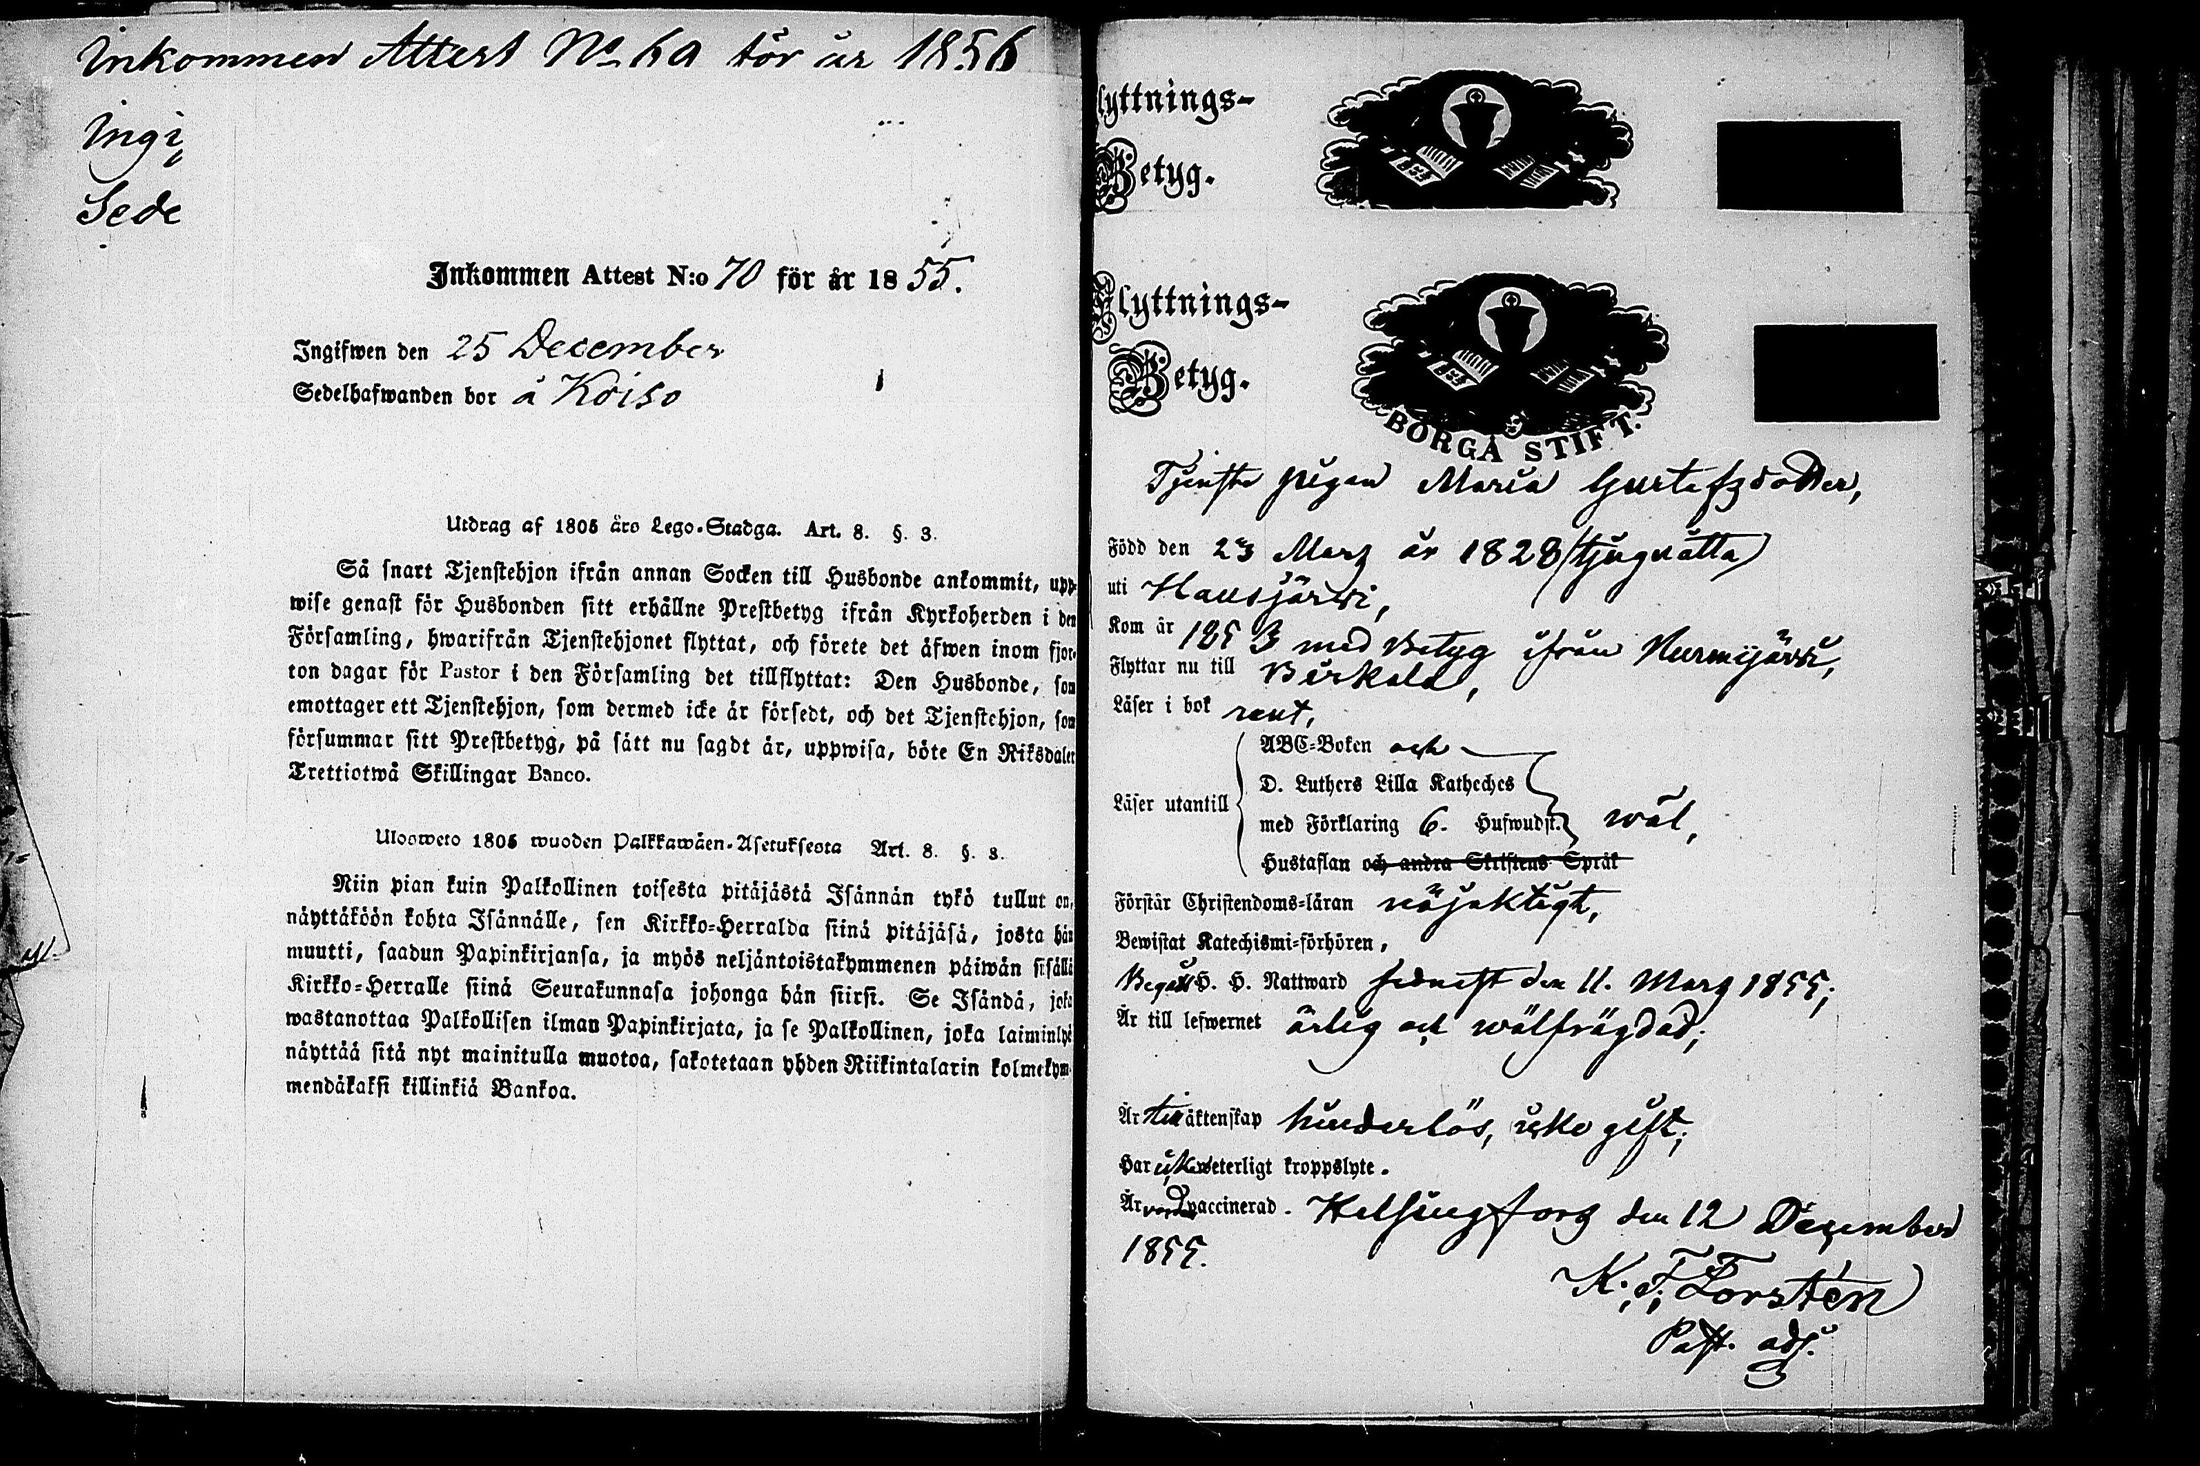 Inkommen Attest No 69 för år 1856
Ingi
Sede
Inkommen Attest N:o 70 för år 1855.
Ingifwen den 25 December
Sedelhafwanden bor å Koiso
Utdrag af 1805 års Lego-Stadga. Art. 8. §. 3.
Så snart Tjenstehjon ifrån annan Socken till Husbonde ankommit, upp-
wise genast för Husbonden sitt erhållne Prestbetyg ifrån Kyrkoherden i den
Församling, hwarifrån Tjenstehjonet flyttat, och förete det äfwen inom fjor-
ton dagar för Pastor i den Församling det tillflyttat: Den Husbonde, som
emottager ett Tjenstehjon, som dermed icke är försedt, och det Tjenstehjon, som
försummar sitt Prestbetyg, på sätt nu sagdt är, uppwisa, böte En Riksdaler
Trettiotwå Skillingar Banco.
Ulosweto 1805 wuoden Palkkawäen-Asetuksesta Art. 8. §. 3.
Niin pian kuin Palkollinen toisesta pitäjästä Isännän tykö tullut on,
näyttäköön kohta Isännälle, sen Kirkko-Herralda siinä pitäjäsä, josta hän
muutti, saadun Papinkirjansa, ja myös neljäntoistakymmenen päiwän sisällä
Kirkko-Herralle siinä Seurakunnasa johonga hän siirsi. Se Isändä, joka
wastanottaa Palkollisen ilman Papinkirjata, ja se Palkollinen, joka laiminlyö
näyttää sitä nyt mainitulla muotoa, sakotetaan yhden Riikintalarin kolmekym-
mendäkaksi killinkiä Bankoa.
lyttnings-
Betyg.
Flyttnings-
Betyg.
BORGÅ STIFT.
Tjenste pigan Maria Gustafsdotter,
Född den 23 Mars år 1828 (tjuguåtta)
uti Hausjärwi,
Kom år 1853 med Betyg ifrån Nurmijärwi,
Flyttar nu till Birkala,
Läser i bok rent,
ABC-Boken och
D. Luthers Lilla Katheches
Läser utantill med Förklaring 6. Hufwudst. wäl,
Hustaflan och andra Skriftens Språk
Förstår Christendoms-läran nöjaktigt,
Bewistat Katechismi-förhören,
Begått H. H. Nattward sednast den 11. Mars 1855;
Är till lefwernet ärlig och wälfrägdad;
Är till äktenskap hinderlös, icke gift;
Har icke weterligt kroppslyte.
Är vaccinerad. Helsingfors den 12 December
1855.
K. F. Forstén
Past. adj.